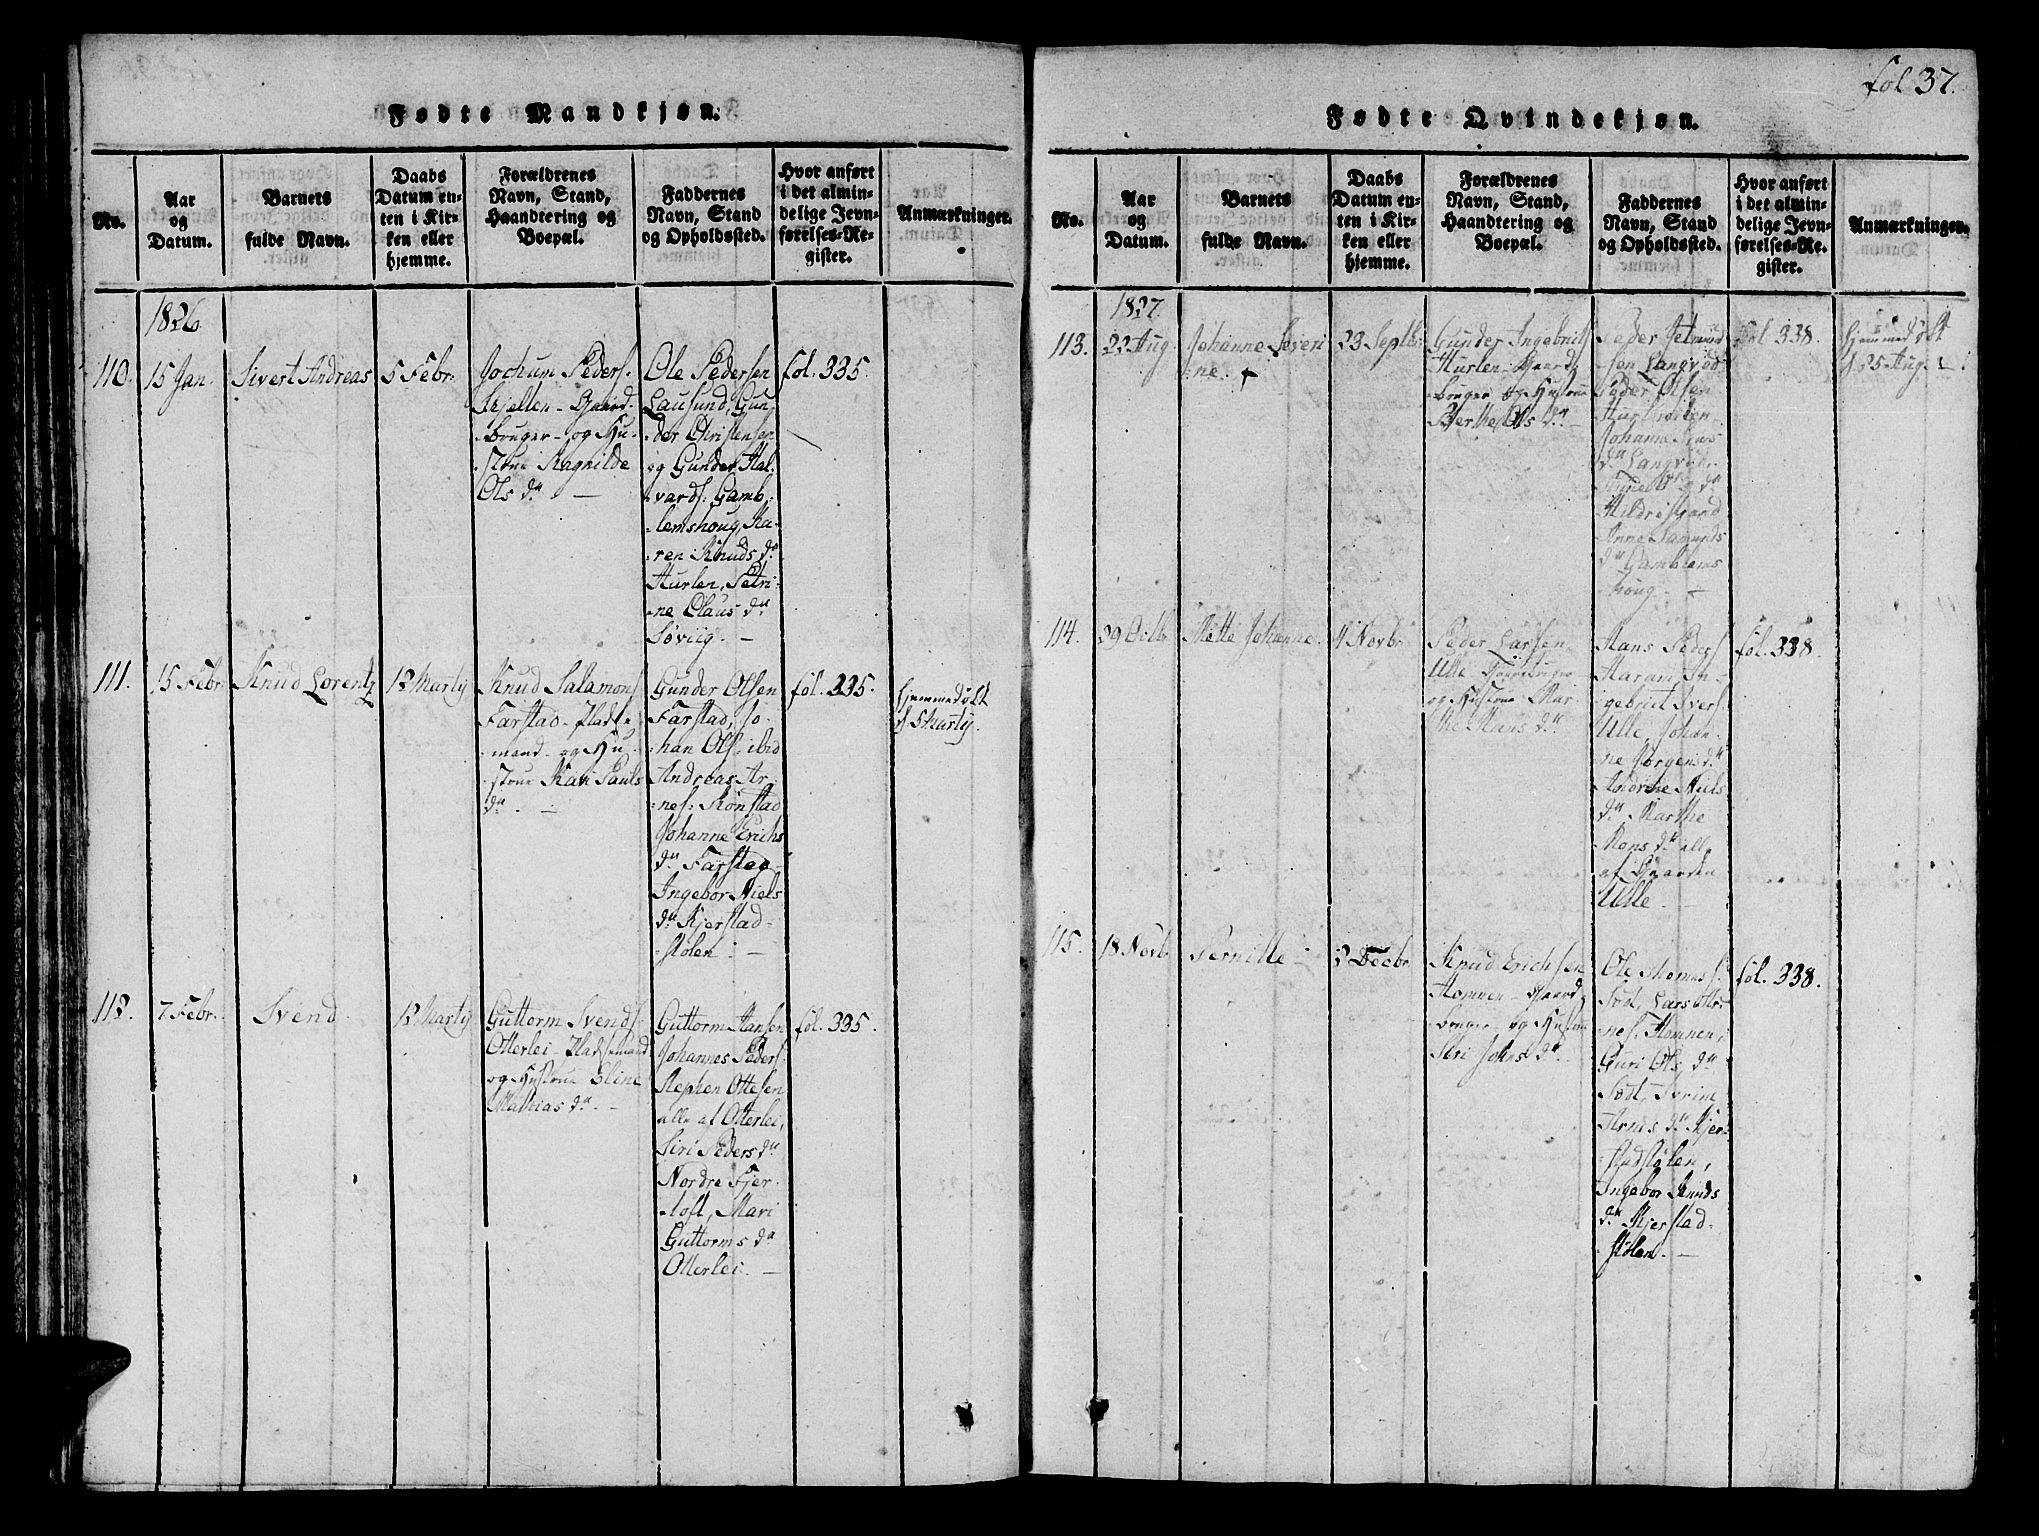 Fødte Mandkjøn.
No.
Aar og Datum.
Barnets fulde Navn.
Daabs Datum enten i Kirken eller hjemme.
Forældrenes Navn, Stand, Haandtering og Boepæl.
Faddernes Navn, Stand og Opholdssted.
Hvor anført i det almindelige Jevnførelses-Register.
Anmærkninger.
1826.
110.
15 Jan.
Sivert Andreas
5 Febr.
Jochum Peders.
Skjellen - Gaard-
-bruger - og Hu-
-strue Ragnilde
Ols dtr. -
Ole Pedersen
Lausund, Gun-
-der Christensen
og Gunder Hal-
-vards. Gamb-
-lemshoug, Ka-
-ren Knuds dtr.
Hurlen, Petri-
-ne Claus dtr.
Søviig. -
fol. 335.
111.
15 Febr.
Knud Lorentz
12 Martij
Knud Salamons.
Farstad - Plads-
-mand - og Hu-
-strue Kari Pauls
dtr. -
Gunder Olsen
Farstad, Jo-
-han Ols. ibid
Andreas Ar-
-nes. Rønstad
Johanne Erichs
dtr. Farstad
Ingebor Niels
dtr. Kjerstad-
-stølen. -
fol. 335.
hjemmedøbt
d. 5 Martij.
112.
7 Febr.
Svend
12 Martij
Guttorm Svends.
Otterlei - Pladsemand
og Hustrue Eline
Mathias dtr. -
Guttorm Hansen
Johannes Peders.
Stephen Ottesen
alle af Otterlei,
Siri Peders dtr.
Nordre Fjer-
-toft, Mari
Guttorms dtr.
Otterlei. -
fol. 335.
fol 37.
Fødte Qvindekjøn.
No.
Aar og Datum.
Barnets fulde Navn.
Daabs Datum enten i Kirken eller hjemme.
Forældrenes Navn, Stand, Haandtering og Boepæl.
Faddernes Navn, Stand og Opholdssted.
Hvor anført i det almindelige Jevnførelses-Register.
Anmærkninger.
1827.
113.
22 Aug.
Johanne Severi
-ne. +
23 Septbr
Gunder Ingebrits.
Hurlen - Gaard-
-bruger og Hustrue
Berthe Ols dtr. -
Peder
-sen Langvad
Peder Olsen
Johanne
dtr. Langvad
dtr.
Anne
dtr. Gamblems
-houg. -
fol. 338.
hjemmedøbt
d. 25 Aug.
114.
29 Octbr
Mette Johanne.
4 Novbr
Peder Larsen
Ulle Gaardbruger
og Hustrue Mar-
-the Hans dtr.
Hans Peders.
Haram, In-
-gebrit Ivers.
Ulle, Johan-
-ne Jørgens dtr.
Niels
dtr. Marthe
Mons dtr. alle
af Gaarden
Ulle -
fol. 338.
115.
18 Novbr
Pernille -
2 Decbr
Knud Erichsen
Homnen - Gaard-
-bruger - og Hustrue
Siri Johns dtr.
Ole Monss.
Sødt, Lars Ar-
-nes. Homnen,
Guri Ols dtr.
Sødt,
Arnes dtr. Kjer-
-stadstølen,
Ingebor Knuds
dtr. Kjerstad-
-stølen. -
fol. 338.